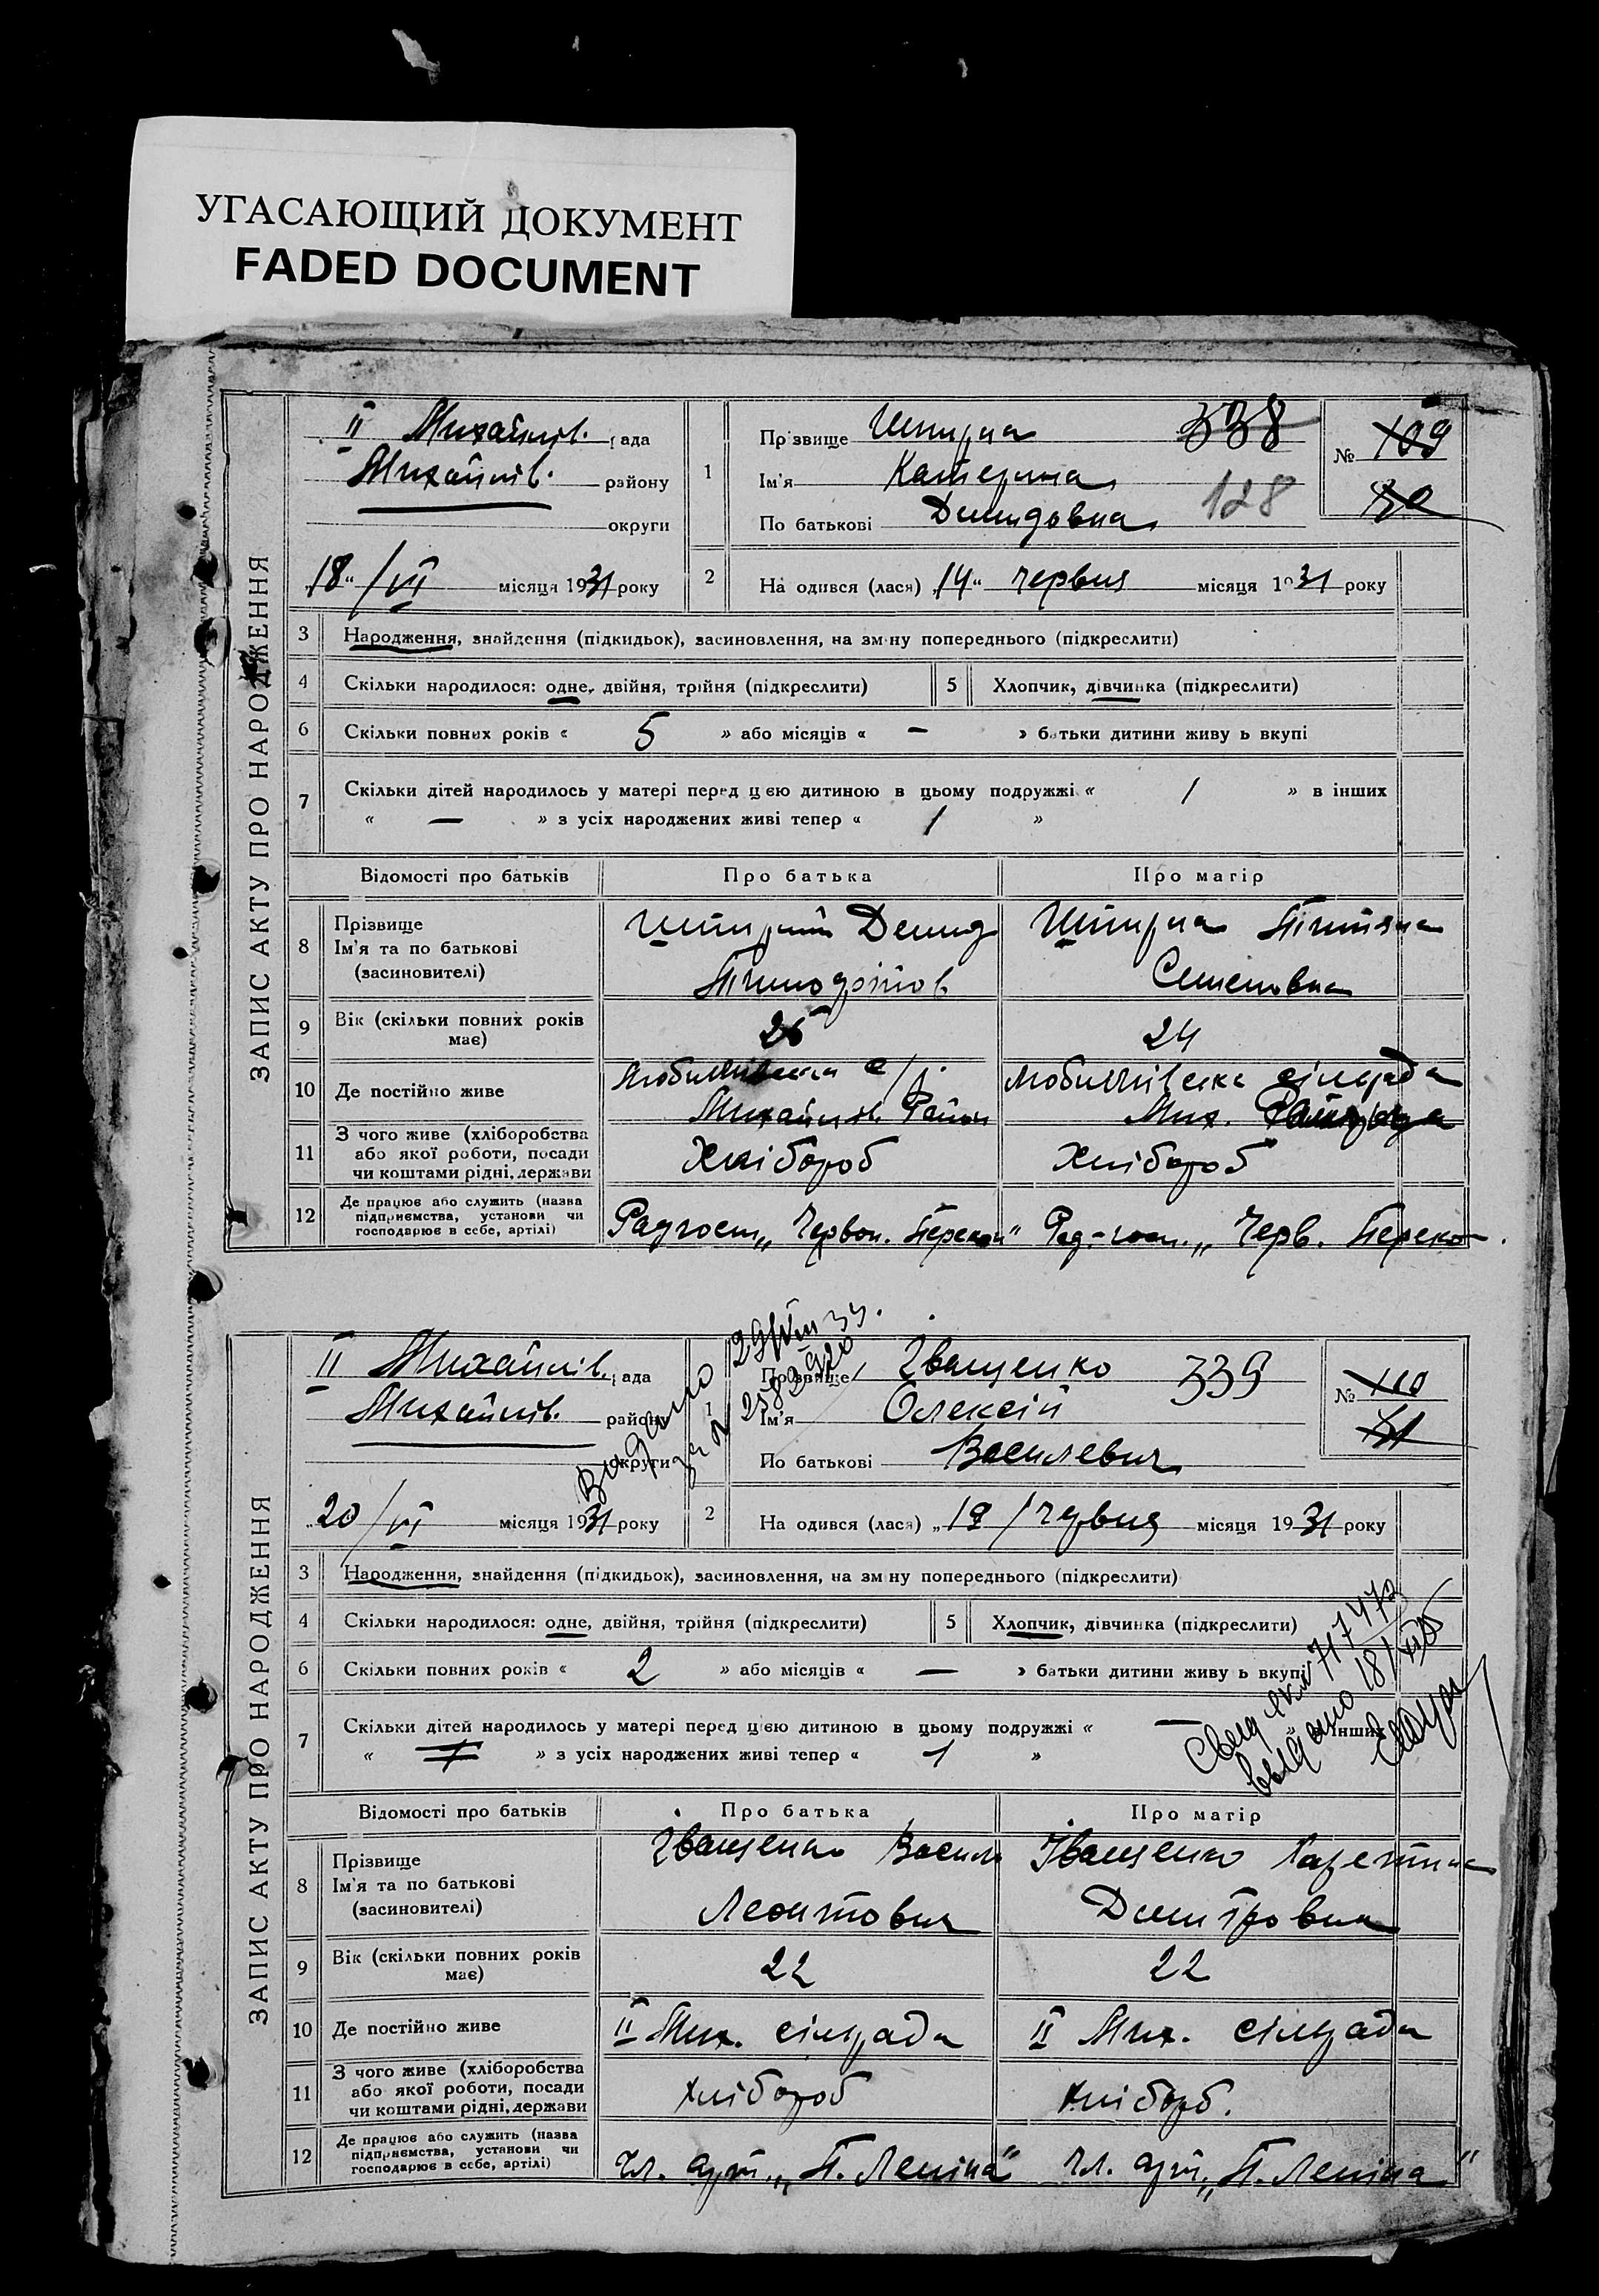 УГАСАЮЩИЙ ДОКУМЕНТ
FADED DOCUMENT
ЗАПИС АКТУ ПРО НАРОДЖЕННЯ
II Михайлів. рада
Михайлів. району
округи
18 / VI місяця 1931 року
1 Прізвище 338
Ім'я Катерина
По батькові Демидовна 128
№ 109
30
2 Народився (лася) „14“ червня місяця 1931 року
3 Народження, знайдення (підкидьок), засиновлення, на зміну попереднього (підкреслити)
4 Скільки народилося: одне, двійня, трійня (підкреслити)
5 Хлопчик, дівчинка (підкреслити)
6 Скільки повних років « 5 » або місяців « — » батьки дитини живуть вкупі
7 Скільки дітей народилось у матері перед цією дитиною в цьому подружжі « 1 » в інших
« — » з усіх народжених живі тепер « 1 »
Відомості про батьків Про батька Про матір
8 Прізвище
Ім'я та по батькові
(засиновителі)
Демид
Семеновна
9 Вік (скільки повних років має)
24
10 Де постійно живе
с/р. сільрада
Михайлів. Район Мих.
11 З чого живе (хліборобства
або якої роботи, посади
чи коштами рідні, держави
Хлібороб Хлібороб
12 Де працює або служить (назва
підприємства, установи чи
господарює в себе, артілі)
Радгосп „Червон. Перекоп“ Рад-госп. „Черв. Переко
ЗАПИС АКТУ ПРО НАРОДЖЕННЯ
II Михайлів. рада
Михайлів. району
округи
20 / VI місяця 1931 року
Видано
1 Прізвище Іващенко 339
Ім'я Олексій
По батькові Василевич
№ 110
31
2 Народився (лася) „19 / червня місяця 1931 року
3 Народження, знайдення (підкидьок), засиновлення, на зміну попереднього (підкреслити)
4 Скільки народилося: одне, двійня, трійня (підкреслити)
5 Хлопчик, дівчинка (підкреслити)
6 Скільки повних років « 2 » або місяців « — » батьки дитини живуть вкупі
7 Скільки дітей народилось у матері перед цією дитиною в цьому подружжі « — » в інших
« » з усіх народжених живі тепер « 1 »
Відомості про батьків Про батька Про матір
8 Прізвище
Ім'я та по батькові
(засиновителі)
Іващенко Василь Іващенко
Леонтович Дмитровна
9 Вік (скільки повних років має)
22 22
10 Де постійно живе
II Мих. сільрада II Мих. сільрада
11 З чого живе (хліборобства
або якої роботи, посади
чи коштами рідні, держави
хлібороб хлібороб.
12 Де працює або служить (назва
підприємства, установи чи
господарює в себе, артілі)
Чл. арт. „П. Леніна“ Чл. арт. „П. Леніна“